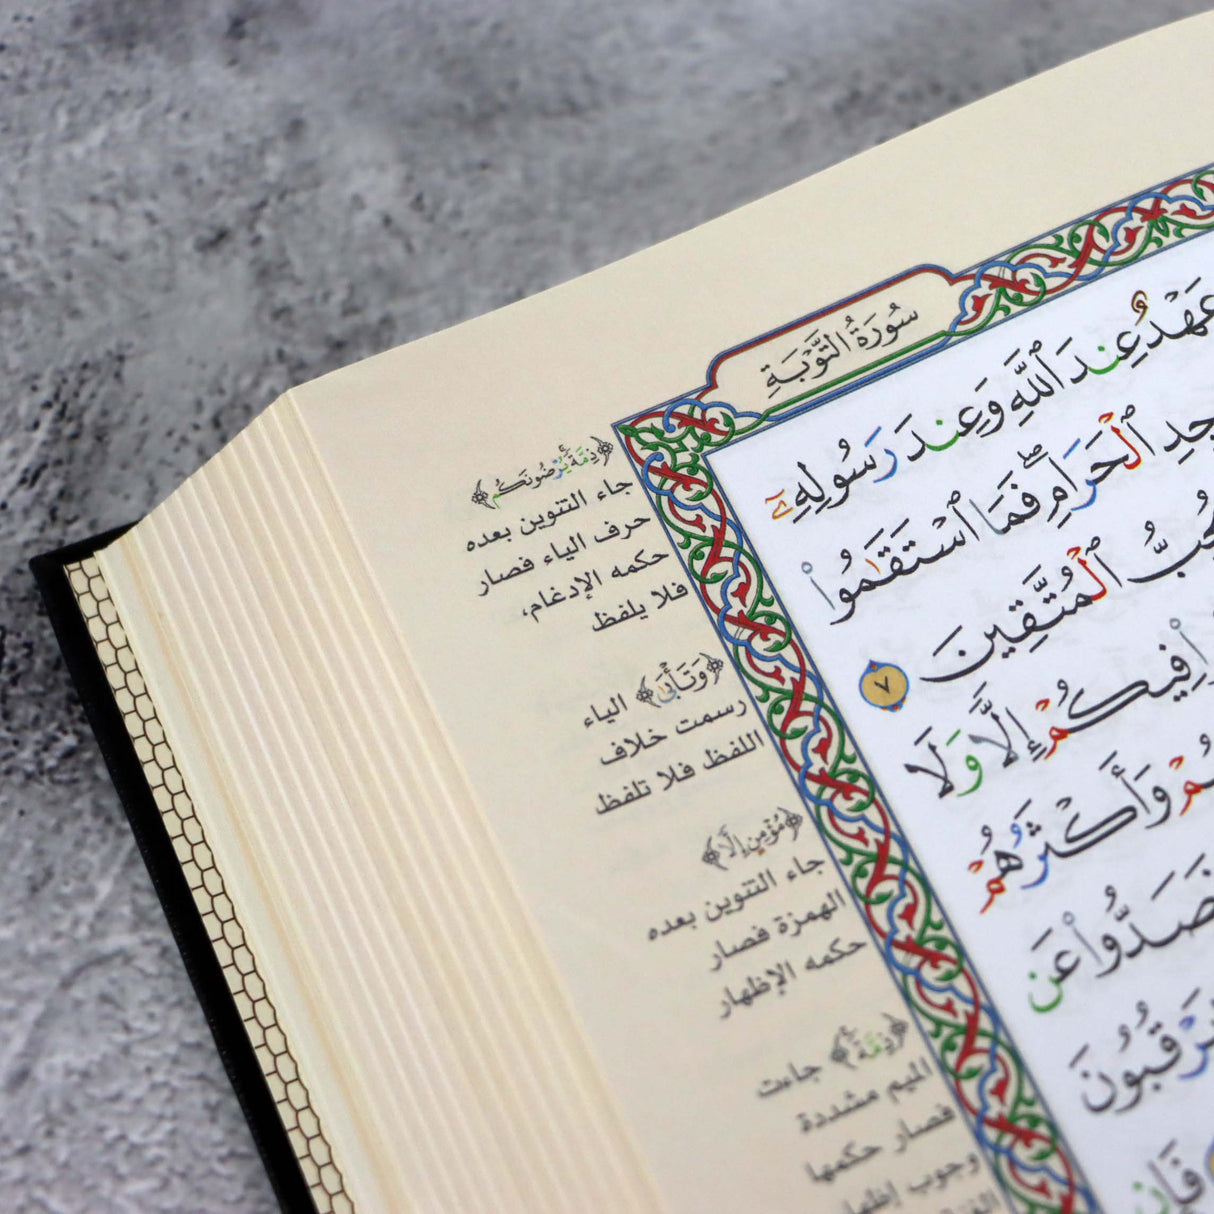 سُورَةُ التَّوۡبَةِ
عَهۡدٌ عِندَ ٱللَّهِ وَعِندَ رَسُولِهِۦٓ
ٱلۡحَرَامِۖ فَمَا ٱسۡتَقَٰمُواْ
ٱلۡمُتَّقِينَ ٧
فِيكُمۡ إِلّٗا وَلَا
وَأَكۡثَرُهُمۡ
فَصَدُّواْ عَن
يَرۡقُبُونَ
فَإِن
﴿ذِمَّةٗۚ يُرۡضُونَكُم﴾
جاء التنوين بعده
حرف الياء فصار
حكمه الإدغام،
فلا يلفظ
﴿وَتَأۡبَىٰ﴾ الياء
رسمت خلاف
اللفظ فلا تلفظ
﴿مُؤۡمِنٍ إِلّٗا﴾
جاء التنوين بعده
الهمزة فصار
حكمه الإظهار
﴿ذِمَّةٗۚ﴾ جاءت
الميم مشددة
فصار حكمها
وجوب إظهار